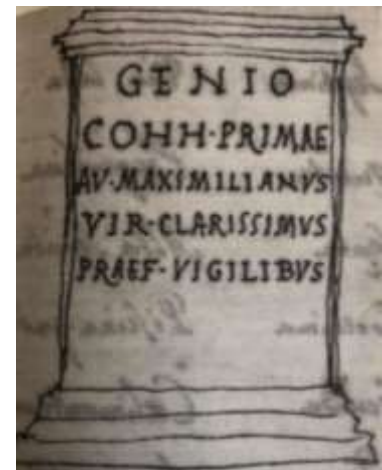 GENIO
COHH·PRIMAE
AV·MAXIMILIANVS
VIR·CLARISSIMVS
PRAEF·VIGILIBVS